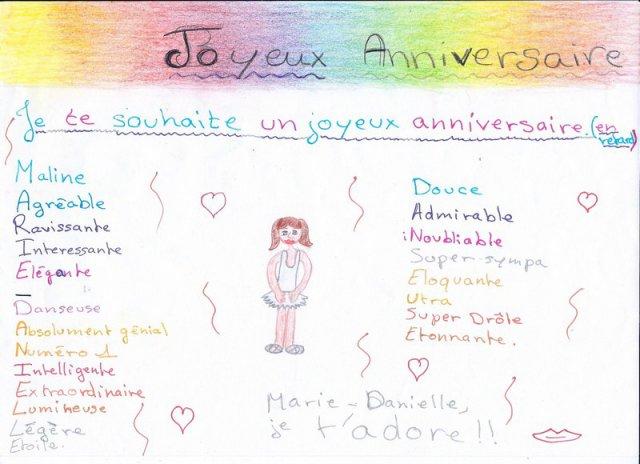 Joyeux Anniversaire
Je te souhaite un joyeux anniversaire. (en retard)
Maline
Agréable
Ravissante
Interessante
Elégante
_
Danseuse
Absolument génial
Numéro 1
Intelligente
Extraordinaire
Lumineuse
Légère
Etoile.
Douce
Admirable
iNoubliable
Super-sympa
Eloquante
Utra
Super Drôle
Etonnante.
Marie-Danielle,
je t'adore!!